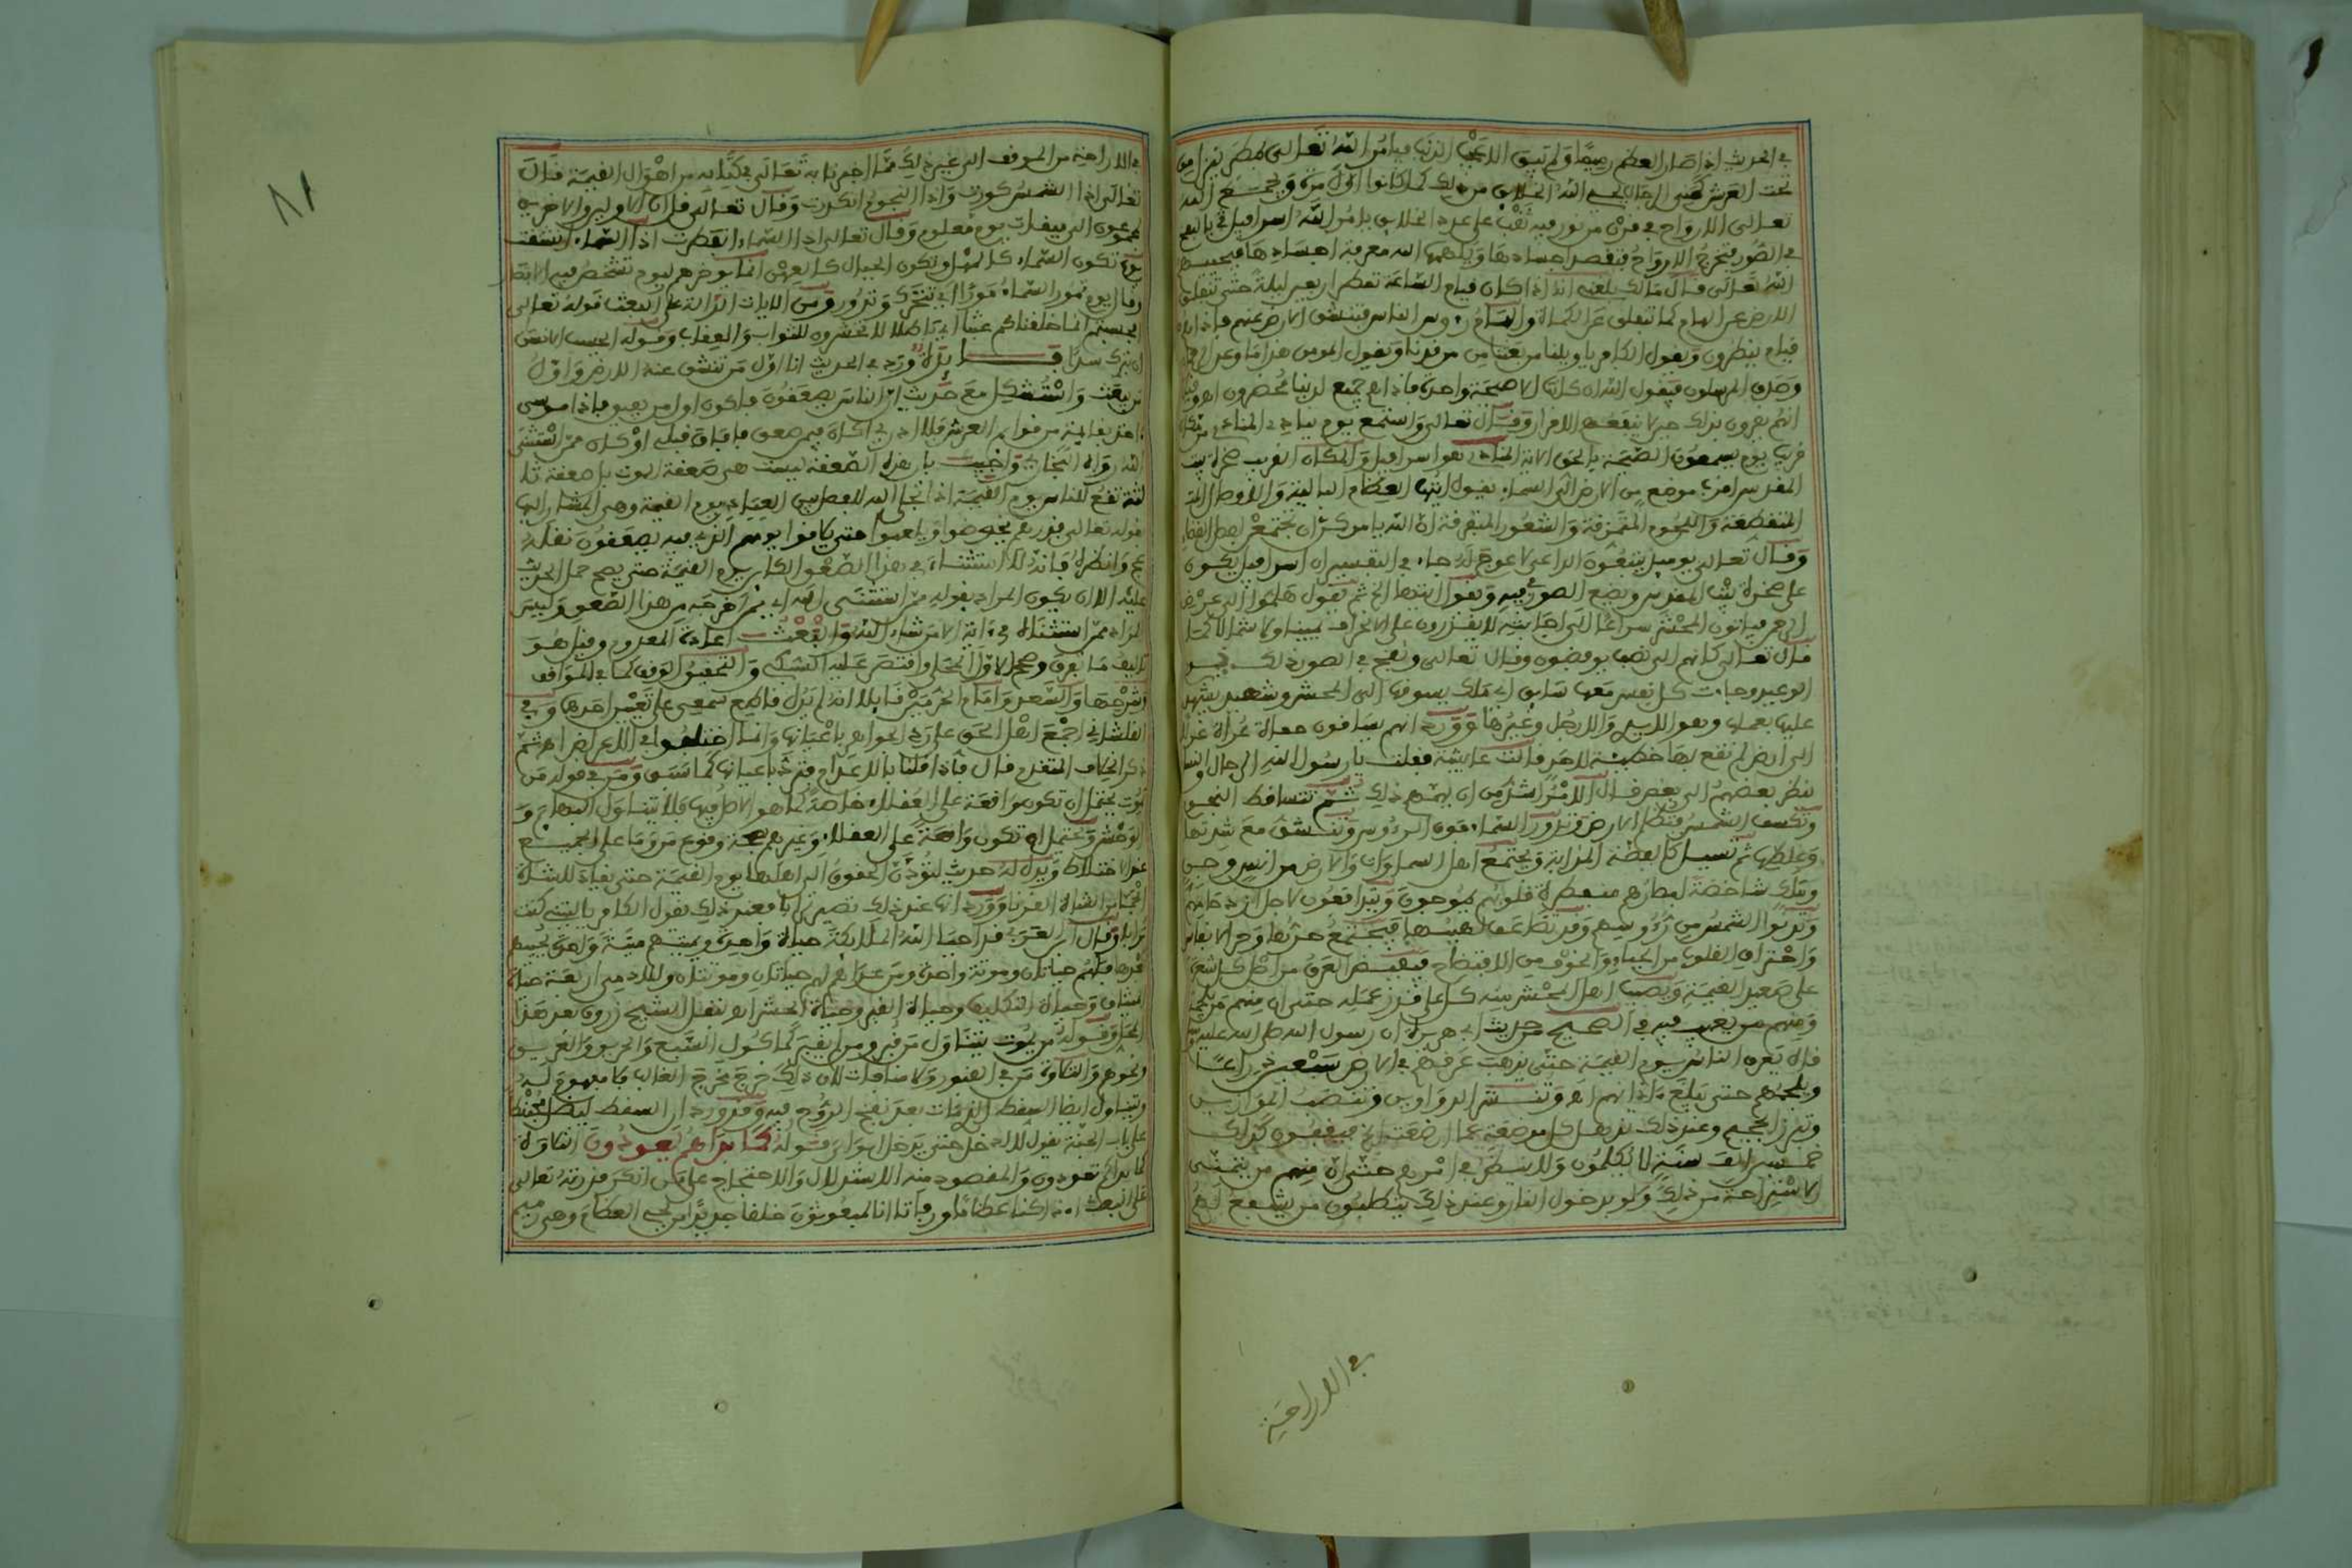 في الحديث اذا صار العظم رميما ولم تبق الا عجب الذنب فيامر الله تعالى بمطر ينزل من
تحت العرش كمني الرجال يحيي الله الخلايق من ذلك كما كانوا اول مرة ويجمع الله
تعالى الارواح في قرن من نور فيه ثقب على عدد الخلايق يامر الله اسرافيل
في الصور فتخرج الارواح فتقصد اجسادها ويلهمها الله معرفة اجسادها فيحييهم
الله تعالى قال مالك بلغني انه اذا كان قيام الساعة تمطر اربعين ليلة حتى تنفلق
الارض عن الهام كما تنفلق عن الكماة والهام روس الناس فتنشق الارض عنهم فاذا هم
قيام ينظرون ويقول الكافر يا ويلنا من بعثنا من مرقدنا ويقول المومن هذا ما وعد الرحمان
وصدق المرسلون فيقول الله ان كانت الا صيحة واحدة فاذا هم جميع لدينا محضرون
انهم يقرون بذلك حين لا ينفعهم الاقرار وقال تعالى واستمع يوم ينادي المنادي من مكان
قريب يوم يسمعون الصيحة بالحق الاية المنادي هو اسرافيل والمكان القريب صخرة بيت
المقدس اقرب موضع من الارض الى السماء يقول ايتها العظام البالية والاوصال
المتقطعة واللحوم المتمزقة والشعور المتفرقة ان الله يامركن ان تجتمعن لفصل القضاء
وقال تعالى يوميذ يتبعون الداعي لا عوج له جاء في التفسير ان اسرافيل يكون
على صخرة بيت المقدس ويضع الصور في فيه ويقول ايتها الخ ثم يقول هلموا الى عرض
الرحمن فياتون المحشر سراعا الى اجابته لا يقدرون على الانحراف يمينا ولا شمالا كما
قال تعالى كانهم الى نصب يوفضون وقال تعالى ونفخ في الصور ذلك يوم
الوعيد وجاءت كل نفس معها سايق اي ملك يسوقها الى المحشر وشهيد يشهد
عليها بعملها وهو الايدي والارجل وغيرها وورد انهم يساقون حفاة عراة غرلا
الى ارض لم تقع بها خطيئة لاحد قالت عايشة فقلت يا رسول الله الرجال والنساء
ينظر بعضهم الى بعض قال الامر اشد من ان يهمهم ذلك ثم تتساقط النجوم
وتكسف الشمس فتظلم الارض وتدور السماء فوق الرءوس وتنشق مع شدتها
وغلظها ثم تسيل كالفضة المذابة ويجتمع اهل السماوات والارض من انس وجن
وملك شاخصة ابصارهم منفطرة قلوبهم يموجون ويتدافعون لاجل ازدحامهم
وتدنوا الشمس من رءوسهم وقد تضاعف لهيبها فيجتمع حرها وحر الانفاس
واحتراق القلوب من الحياء والخوف من الافتضاح فيفيض العرق من اصل كل شعرة
على صعيد القيمة ويصيب اهل المحشر منه كل على قدر عمله حتى ان منهم من يلجمه
ومنهم من يغيب فيه في الصحيح حديث ابي هريرة ان رسول الله صلى الله عليه وسلم
قال يعرق الناس يوم القيمة حتى يذهب عرقهم في الارض سبعين ذراعا
ويلجمهم حتى يبلغ ءاذانهم اه وتنتشر الدواوين وتنصب الموازين
وتبرز الجحيم وعند ذلك تذهل كل مرضعة عما ارضعت فيقفون كذلك
خمسين الف سنة لا يكلمون ولا ينظر في امرهم حتى ان منهم من يتمنى
الاستراحة من ذلك ولو بدخول النار وعند ذلك يتطلبون من يشفع لهم
في الاراحة
في الاراحة من الموقف الى غير ذلك مما اخبرنا به تعالى في كتابه من اهوال القيمة قال
تعالى اذا الشمس كورت واذا النجوم انكدرت وقال تعالى قل ان الاولين والاخرين
لمجموعون الى ميقات يوم معلوم وقال تعالى اذا السماء انفطرت اذا السماء انشقت
يوم تكون السماء كالمهل وتكون الجبال كالعهن انما يوخرهم ليوم تشخص فيه الابصار
وقال يوم تمور السماء مورا اي تتحرك وتدور ومن الايات الدالة على البعث قوله تعالى
افحسبتم انما خلقناكم عبثا اي باطلا لا تحشرون للثواب والعقاب وقوله ايحسب الانسان
ان يترك سدى فايدة ورد في الحديث انا اول من تنشق عنه الارض واول
من يبعث واستشكل مع حديث ان الناس يصعقون فاكون اول من يفيق فاذا موسى
ءاخذ بقايمة من قوايم العرش فلا ادري اكان فيمن صعق فافاق قبلي او كان ممن استثنى
الله رواه البخاري واجيب بان هذه الصعقة ليست هي صعقة الموت بل صعقة ثا
لثة تقع للناس يوم القيمة اذا تجلى الله لفصل بين العباد يوم القيمة وهي المشار اليها
بقوله تعالى فذرهم يخوضوا ويلعبوا حتى يلاقوا يومهم الذي فيه يصعقون نقله
عليه الا ان يكون المراد بقوله ممن استثنى الله اي ممن اخرجه من هذا الصعق وليس
المراد ممن استثناه في ءاية الا من شاء الله والبعث اعادة المعدوم وقيل هو
تاليف ما تفرق وصحح الاول المحلي واقتصر عليه السبكي والتحقيق الوقف كما في المواقف
وشرحها والسعد وامام الحرمين قايلا انه لم يدل قاطع سمعي على تعيين احدها وفي
القلشاني اجمع اهل الحق على رد الجواهر باعيانها وانما اختلفوا في الاعراض اه ثم
ذكر الخلاف المتقدم قال فاذا قلنا بالاعدام فترد باعيانها كما سبق ومن في قوله من
يموت يحتمل ان تكون واقعة على العقلاء خاصة كما هو الاصل فيها فلا يتناول البهايم و
الوحش ويحتمل ان تكون واقعة على العقلاء وغيرهم بجهة وقوع من وما على الجميع
عند الاختلاط ويدل له حديث لتؤدن الحقوق الى اهلها يوم القيمة حتى يقاد للشاة
الجماء من الشاة القرنا وورد انها عند ذلك تصير ترابا فعند ذلك يقول الكافر يا ليتني كنت
ترابا وقال ابن العربي قد احيا الله الملايكة حياة واحدة ويميتهم ميتة واحدة ويحييهم
بعدها فلهم حياتان وموتة واحدة ومن عداهم لهم حياتان وموتتان وللادميين اربعة حياة
الميثاق وحياة التكليف وحياة القبر وحياة الحشر اه نقل الشيخ زروق بعد هذا
المحل وقوله من يموت يتناول من قبر ومن لم يقبر كماكول السبع والحريق والغريق
ونحوهم والتلاوة من في القبور ولا منافات لان ذلك خرج مخرج الغالب فلا مفهوم له
ويتناول ايضا السقط الذي مات بعد نفخ الروح فيه وقد ورد ان السقط ليظل محبنطيا
على باب الجنة يقول لا ادخل حتى يدخل ابواي قوله كما بداهم يعودون التلاوة
كما بداكم تعودون والمقصود منه الاستدلال والاحتجاج على من انكر قدرته تعالى
على البعث اءذا كنا عظاما ورفاتا انا لمبعوثون خلقا جديدا من يحيي العظام وهي رميم